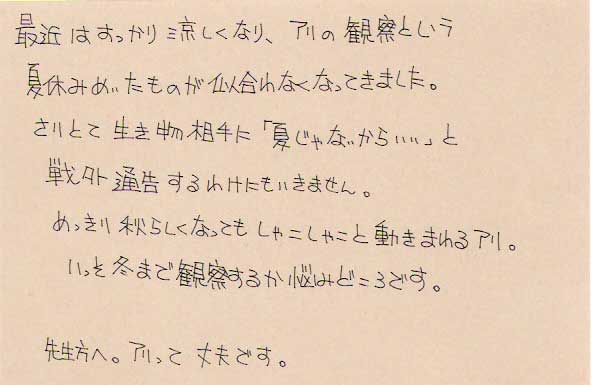 最近はすっかり涼しくなり、アリの観察という
夏休みめいたものが似合わなくなってきました。
さりとて生き物相手に「夏じゃないからいい」と
戦外通告するわけにもいきません。
めっきり秋らしくなってもしゃこしゃこと動きまわるアリ。
いっそ冬まで観察するか悩みどころです。
先生方へ。アリって丈夫です。